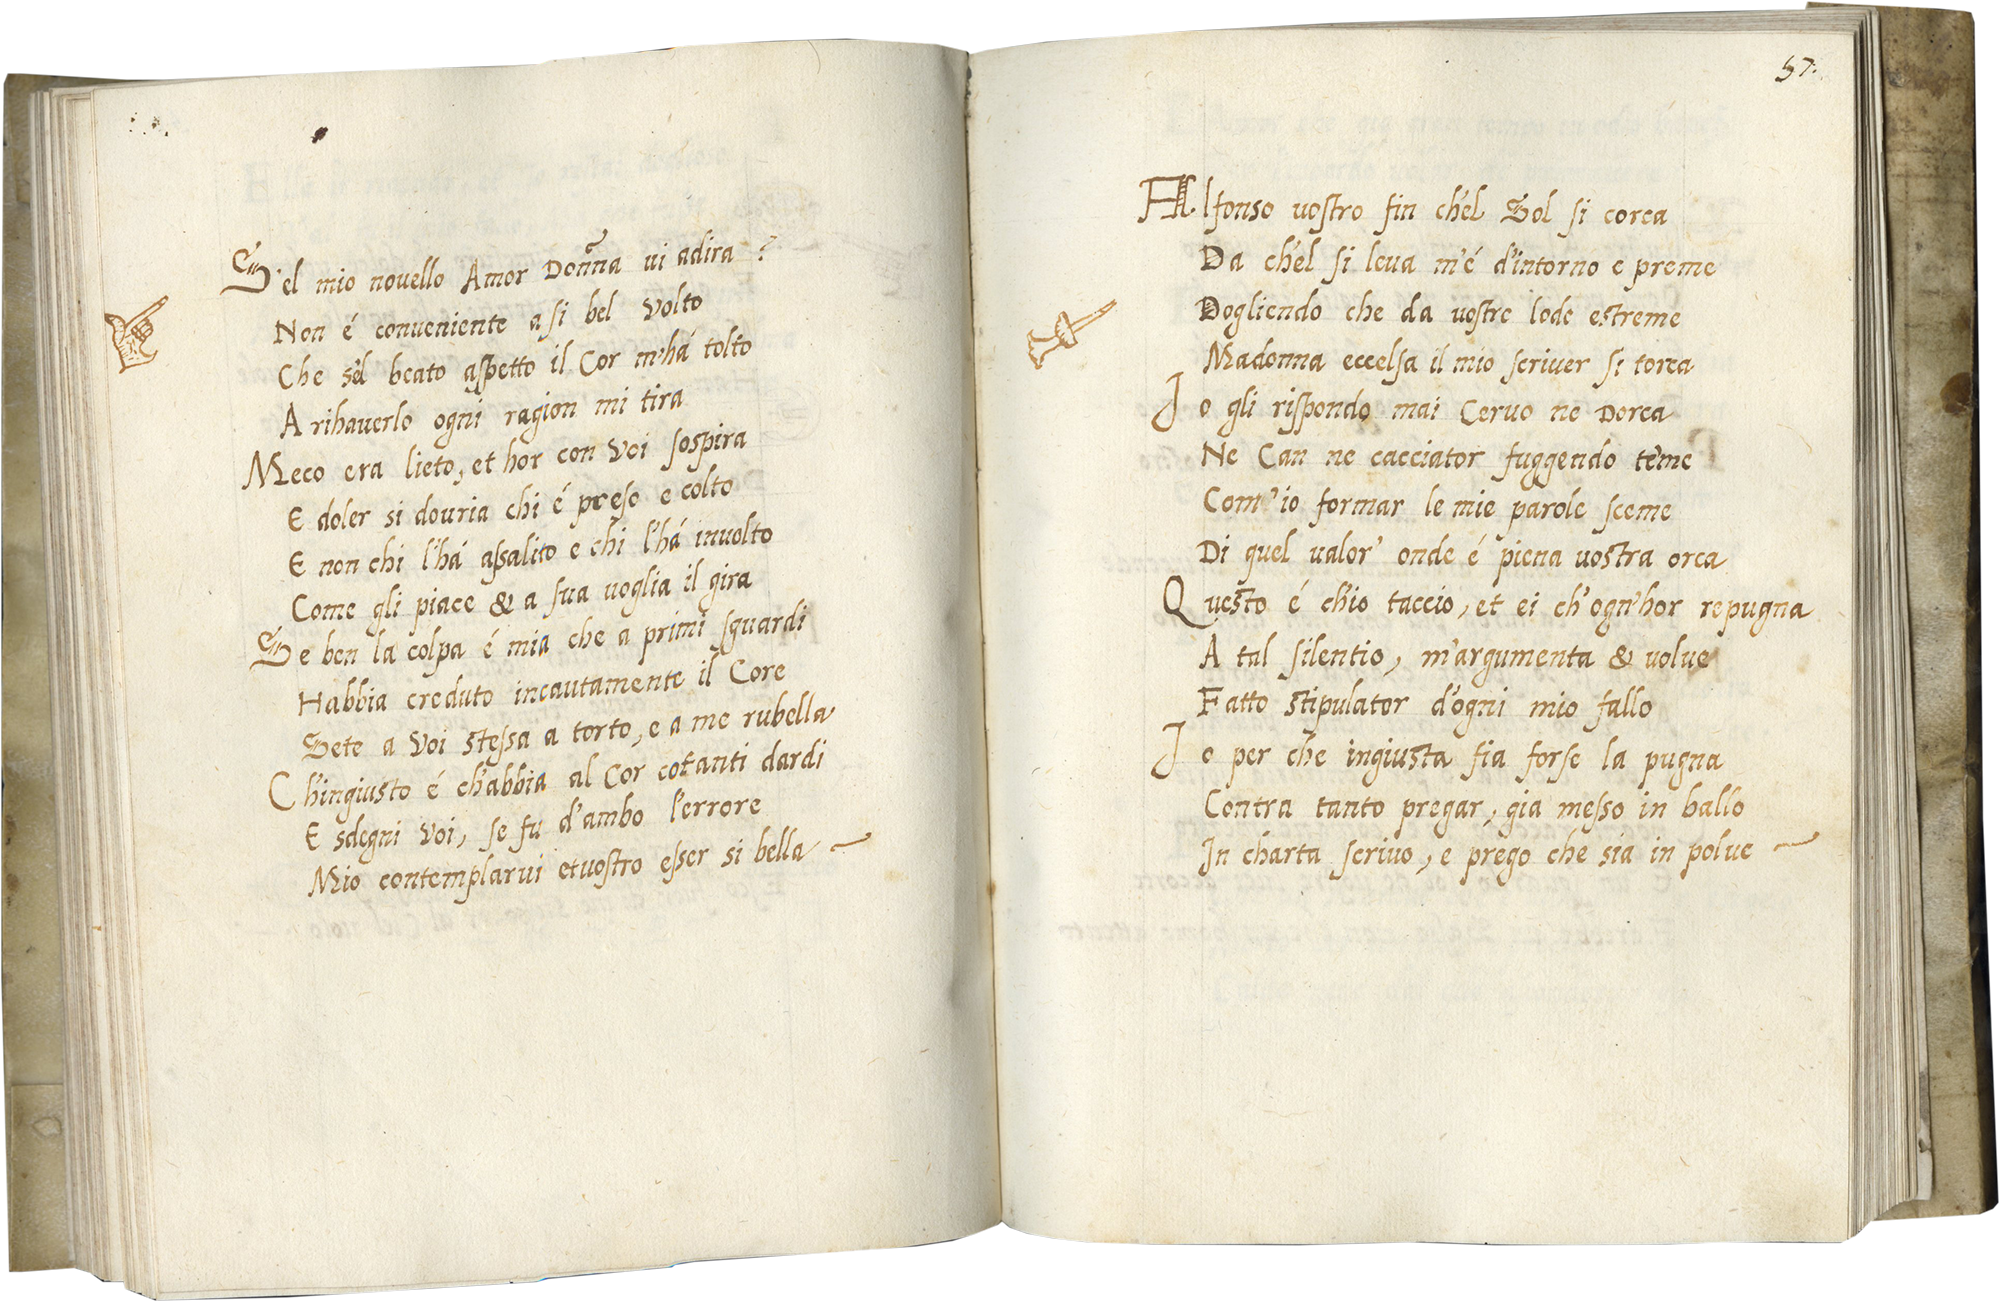 S'el mio novello Amor Donna vi adira?
Non é conveniente a si bel Volto
Che sèl beato aspetto il Cor m'há tolto
A rihaverlo ogni ragion mi tira
Meco era lieto, et hor con Voi sospira
E doler si douria chi é preso e colto
E non chi l'há assalito e chi l'há involto
Come gli piace & a sua voglia il gira
Se ben la colpa é mia che a primi sguardi
Habbia creduto incautamente il Core
Sete a Voi stessa a torto, e a me rubella
Ch'ingiusto é ch'abbia al Cor cotanti dardi
E sdegni Voi, se fu d'ambo l'errore
Mio contemplarvi et vostro esser si bella
57.
Alfonso vostro fin ch'el Sol si corca
Da ch'el si leva m'é d'intorno e preme
Dogliendo che da vostre lode estreme
Madonna eccelsa il mio scriver si torca
Io gli rispondo mai Cervo ne Dorca
Ne Can ne cacciator fuggendo teme
Com'io formar le mie parole sceme
Di quel valor' onde é piena vostra orca
Questo é ch'io taccio, et ei ch'ogn'hor repugna
A tal silentio, m'argumenta & volve
Fatto stipulator d'ogni mio fallo
Io per che ingiusta fia forse la pugna
Contra tanto pregar, gia messo in ballo
In charta scrivo, e prego che sia in polve